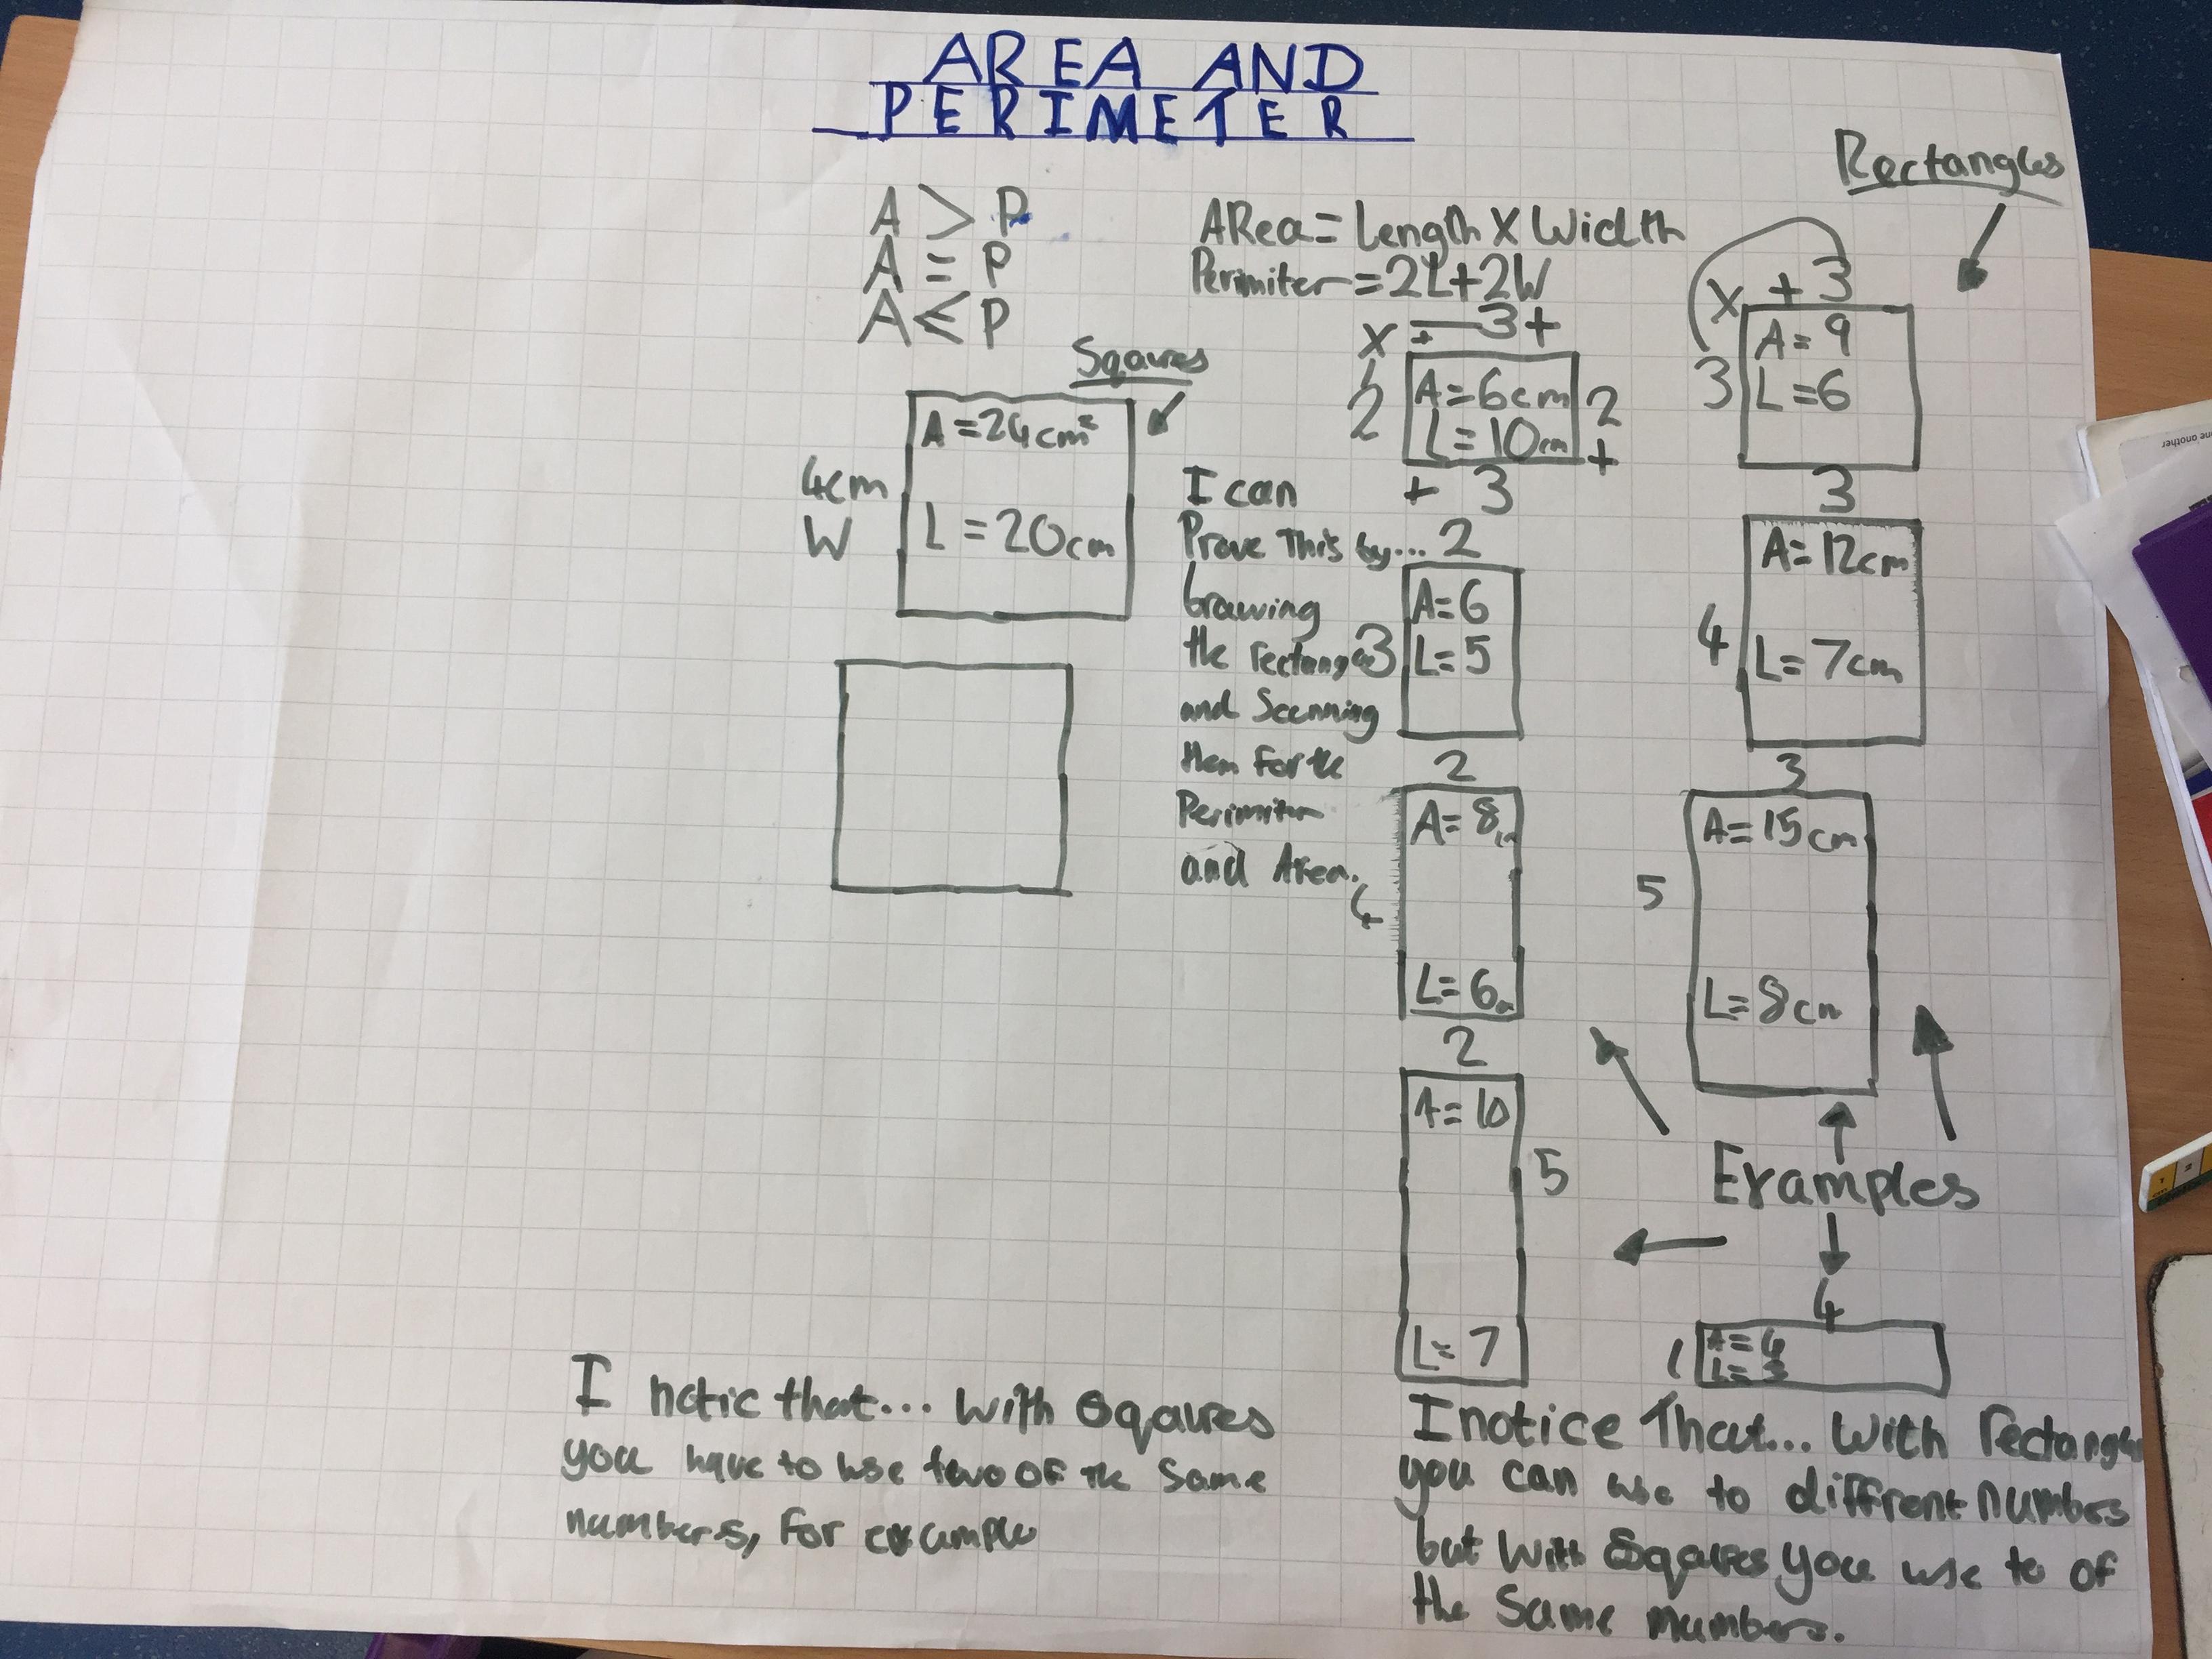 AREA AND
PERIMETER
A > P
A = P
A < P
Sqaures
A = 24cm²
4cm
W
L = 20cm
ARea = Length X Width
Perimiter = 2L+2W
X + 3 +
2
A = 6cm
L = 10cm
2
+
+ 3
I can
Prove This by...
Drawing
the rectangles
and Scanning
them for the
Perimiter
and Area.
2
3
A = 6
L = 5
2
4
A = 8cm
L = 6cm
2
A = 10
5
L = 7
Rectangles
X + 3
3
A = 9
L = 6
3
4
A = 12cm
L = 7cm
3
5
A = 15cm
L = 8cm
Examples
4
1
A = 4
I notic that... with Sqaures
you have to use two of the same
numbers, for example
I notice That... With rectangles
you can use to diffrent numbers
but with Sqaures you use to of
the same numbers.
one another